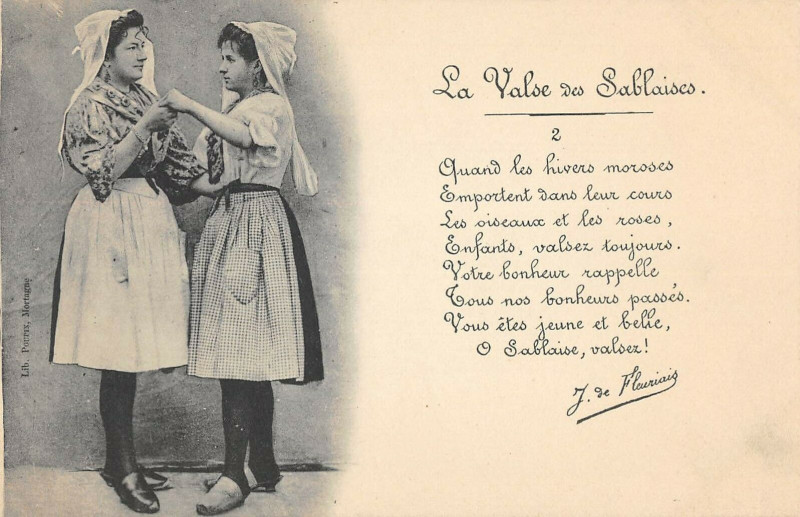 La Valse des Sablaises.
2
Quand les hivers moroses
Emportent dans leur cours
Les oiseaux et les roses,
Enfants, valsez toujours.
Votre bonheur rappelle
Tous nos bonheurs passés.
Vous êtes jeune et belle,
O Sablaise, valsez!
J. de Fleuriais
Lib. Poupin, Mortagne